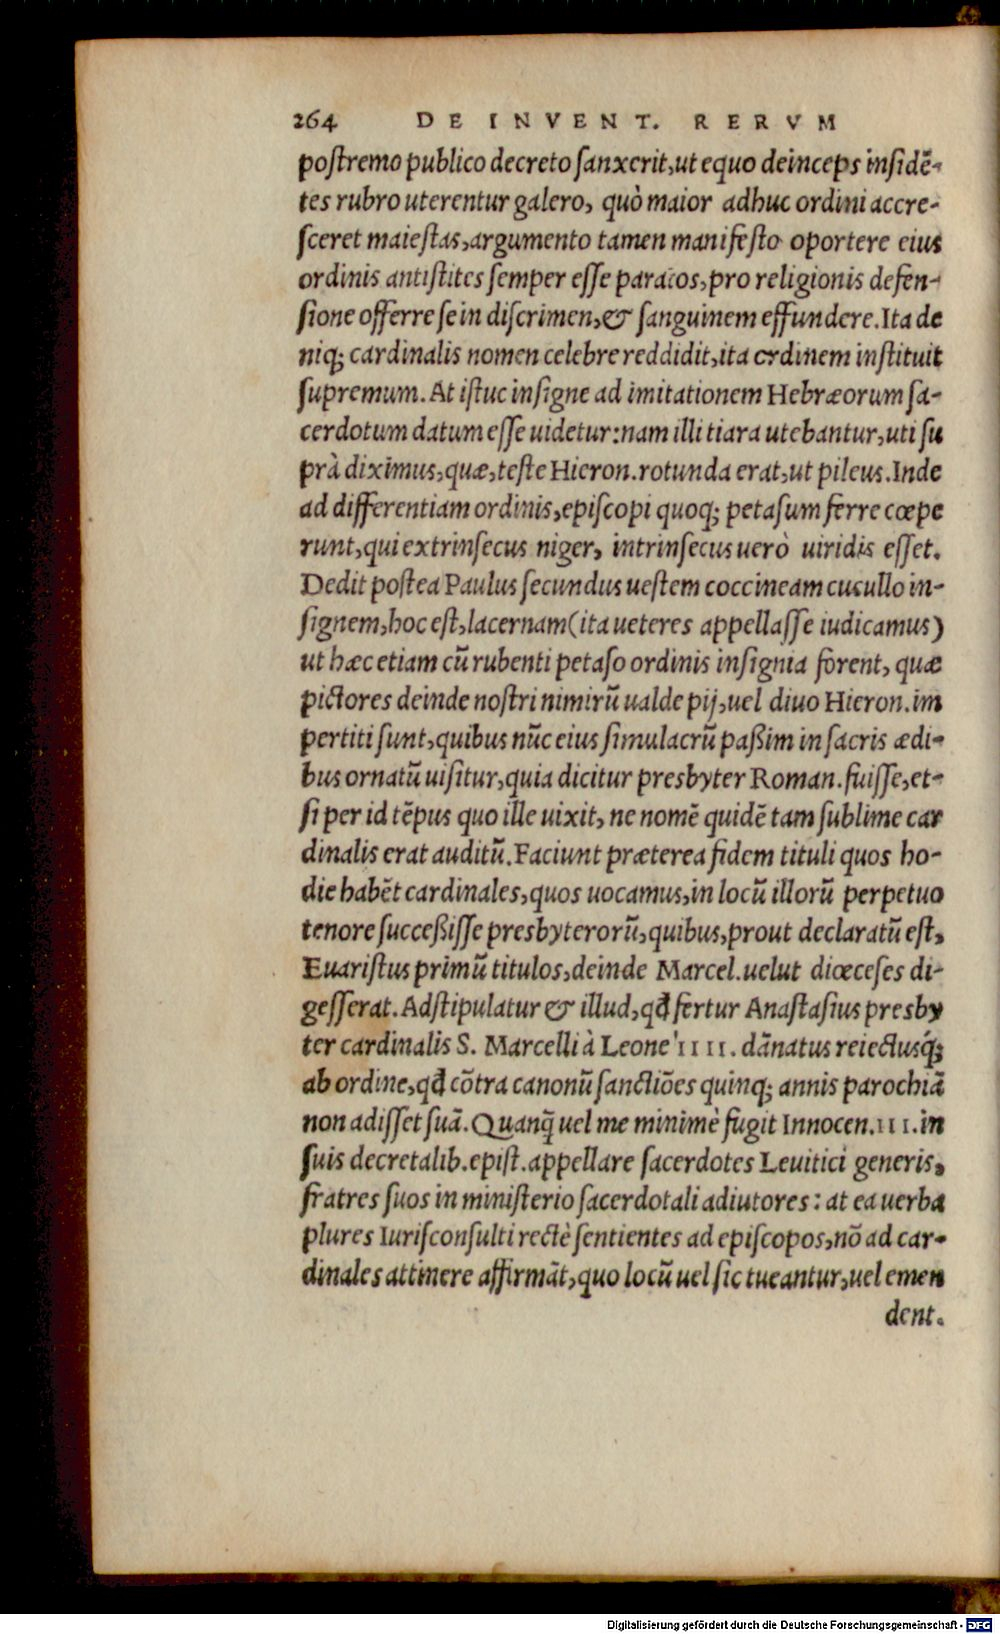 264 DE INVENT. RERVM
postremo publico decreto sanxerit, ut equo deinceps insidē-
tes rubro uterentur galero, quò maior adhuc ordini accre-
sceret maiestas, argumento tamen manifesto oportere eius
ordinis antistites semper esse paratos, pro religionis defen-
sione offerre se in discrimen, & sanguinem effundere. Ita de
niq; cardinalis nomen celebre reddidit, ita ordinem instituit
supremum. At istuc insigne ad imitationem Hebræorum sa-
cerdotum datum esse uidetur: nam illi tiara utebantur, uti su
prà diximus, quæ, teste Hieron. rotunda erat, ut pileus. Inde
ad differentiam ordinis, episcopi quoq; petasum ferre cœpe
runt, qui extrinsecus niger, intrinsecus uerò uiridis esset.
Dedit postea Paulus secundus uestem coccineam cucullo in-
signem, hoc est, lacernam (ita ueteres appellasse iudicamus)
ut hæc etiam cū rubenti petaso ordinis insignia forent, quæ
pictores deinde nostri nimirū ualde pij, uel diuo Hieron. im
pertiti sunt, quibus nūc eius simulacrū paßim in sacris ædi-
bus ornatū uisitur, quia dicitur presbyter Roman. fuisse, et-
si per id tēpus quo ille uixit, ne nomē quidē tam sublime car
dinalis erat auditū. Faciunt præterea fidem tituli quos ho-
die habēt cardinales, quos uocamus, in locū illorū perpetuo
tenore succeßisse presbyterorū, quibus, prout declaratū est,
Euaristus primū titulos, deinde Marcel. uelut diœceses di-
gesserat. Adstipulatur & illud, qđ fertur Anastasius presby
ter cardinalis S. Marcelli à Leone IIII. dānatus reiectusq́;
ab ordine, qđ cōtra canonū sanctiōes quinq; annis parochiā
non adisset suā. Quanq̄ uel me minimè fugit Innocen. III. in
suis decretalib. epist. appellare sacerdotes Leuitici generis,
fratres suos in ministerio sacerdotali adiutores: at ea uerba
plures Iurisconsulti rectè sentientes ad episcopos, nō ad car-
dinales attinere affirmāt, quo locū uel sic tueantur, uel emen
dent.
Digitalisierung gefördert durch die Deutsche Forschungsgemeinschaft - DFG